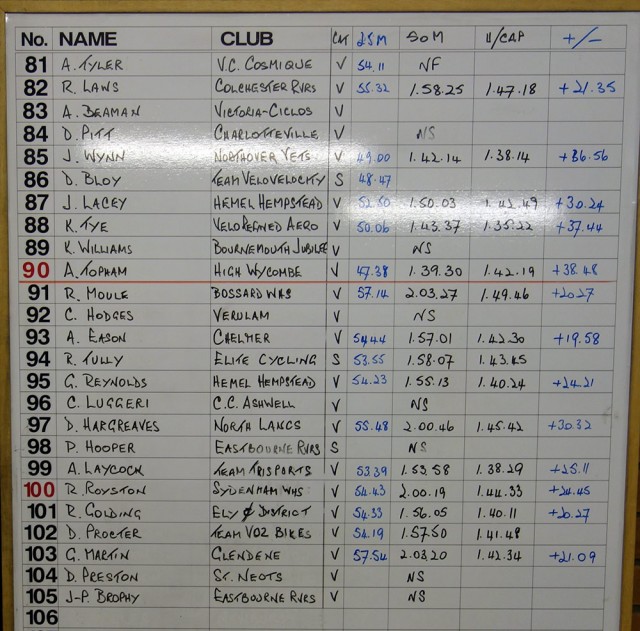 No. NAME CLUB CAT 25M 50M V/CAP +/-
81 A. TYLER V.C. COSMIQUE V 54.11 NF
82 R. LAWS COLCHESTER RVRS V 55.32 1.58.25 1.47.18 +21.35
83 A. BEAMAN VICTORIA-CICLOS V
84 D. PITT CHARLOTTEVILLE V NS
85 J. WYNN NORTHOVER VETS V 49.00 1.42.14 1.38.14 +36.56
86 D. BLOY TEAM VELOVELOCITY S 48.47
87 J. LACEY HEMEL HEMPSTEAD V 52.50 1.50.03 1.42.49 +30.24
88 K. TYE VELOREFINED AERO V 50.06 1.43.37 1.35.22 +37.44
89 K. WILLIAMS BOURNEMOUTH JUBILEE V NS
90 A. TOPHAM HIGH WYCOMBE V 47.38 1.39.30 1.42.19 +38.48
91 R. MOULE BOSSARD WHS V 57.14 2.03.27 1.49.46 +20.27
92 C. HODGES VERULAM V NS
93 A. EASON CHELMER V 54.44 1.57.01 1.42.30 +19.58
94 R. TULLY ELITE CYCLING S 53.55 1.58.07 1.43.45
95 G. REYNOLDS HEMEL HEMPSTEAD V 54.23 1.55.13 1.40.24 +24.21
96 C. LUGGERI C.C. ASHWELL V NS
97 D. HARGREAVES NORTH LANCS V 55.48 2.00.46 1.45.42 +30.32
98 P. HOOPER EASTBOURNE RVRS S NS
99 A. LAYCOCK TEAM TRISPORTS V 53.39 1.53.58 1.38.29 +25.11
100 R. ROYSTON SYDENHAM WHS V 54.43 2.00.19 1.44.33 +24.45
101 R. GOLDING ELY & DISTRICT V 54.33 1.56.05 1.40.11 +20.27
102 D. PROCTER TEAM VO2 BIKES V 54.19 1.57.50 1.41.48
103 G. MARTIN GLENDENE V 57.54 2.03.20 1.42.34 +21.09
104 D. PRESTON ST. NEOTS V NS
105 J-P. BROPHY EASTBOURNE RVRS V NS
106